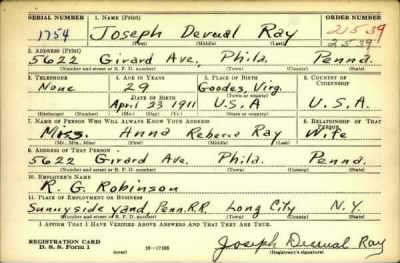 SERIAL NUMBER 1. NAME (Print) ORDER NUMBER
1754 Joseph Ray 2539
(First) (Middle) (Last) 2539
2. ADDRESS (Print)
5622 Girard Ave., Phila. Penna.
(Number and street or R. F. D. number) (Town) (County) (State)
3. TELEPHONE 4. AGE IN YEARS 5. PLACE OF BIRTH 6. COUNTRY OF CITIZENSHIP
None 29 Goodes, Virg.
DATE OF BIRTH (Town or county)
April 23 1911 U.S.A U.S.A.
(Exchange) (Number) (Mo.) (Day) (Yr.) (State or country)
7. NAME OF PERSON WHO WILL ALWAYS KNOW YOUR ADDRESS 8. RELATIONSHIP OF THAT PERSON
Mrs. Anna Rebecca Ray Wife
(Mr., Mrs., Miss) (First) (Middle) (Last)
9. ADDRESS OF THAT PERSON
5622 Girard Ave. Phila. Penna.
(Number and street or R. F. D. number) (Town) (County) (State)
10. EMPLOYER'S NAME
R. G. Robinson
11. PLACE OF EMPLOYMENT OR BUSINESS
Sunnyside yard, Penn. R.R. Long City N.Y.
(Number and street or R. F. D. number) (Town) (County) (State)
I AFFIRM THAT I HAVE VERIFIED ABOVE ANSWERS AND THAT THEY ARE TRUE.
REGISTRATION CARD
D. S. S. Form 1 (over) 16—17105 Joseph Ray
(Registrant's signature)